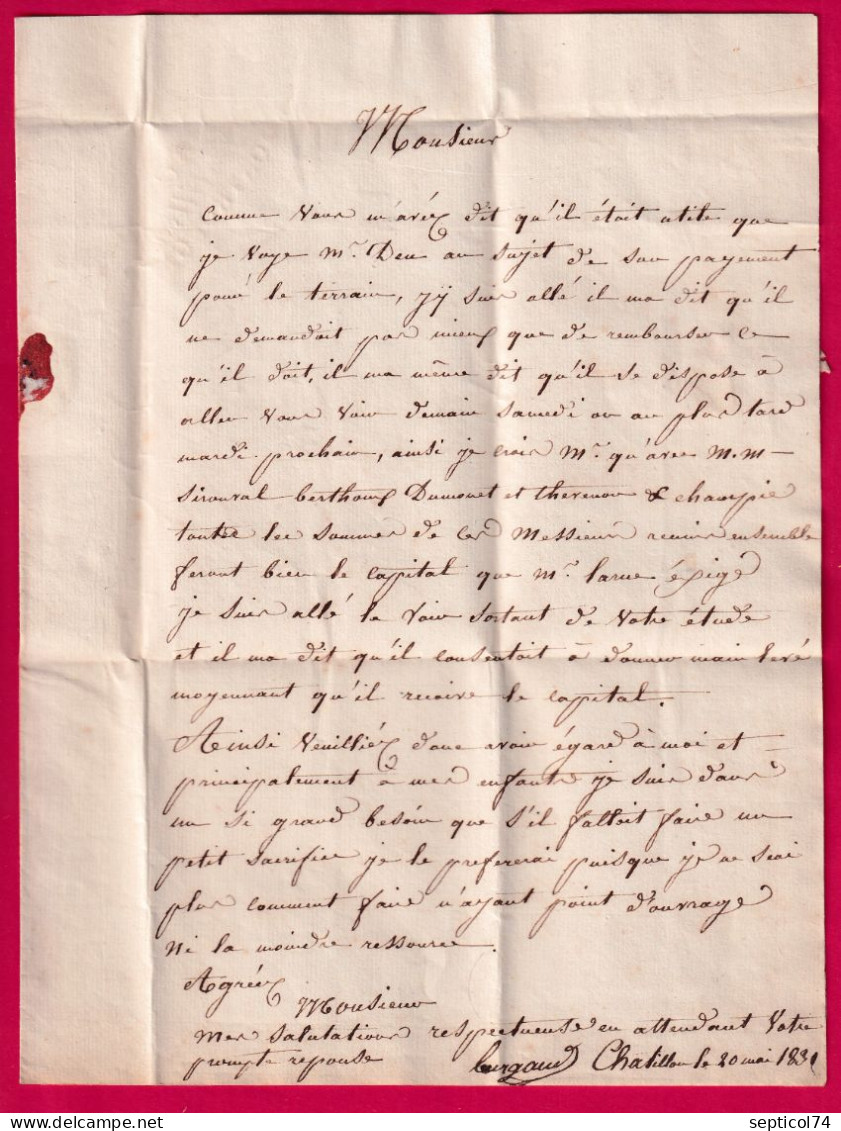 Monsieur
comme vous m'avéz dit qu'il était utile que
je voye Mr. Deu au sujet de son payement
pour le terrain, j'y suis allé il ma dit qu'il
ne demandoit pas mieux que de rembourser ce
qu'il doit, il ma même dit qu'il se dispose à
aller vous voir demain samedi ou au plus tard
mardi prochain, ainsi je crois Mr. qu'avec M.M
Sirouval berthoux Dumonet et thevenon & champie
toutes les sommes de ces Messieurs reunies ensemble
feront bien le capital que Mr. larue éxige
je suis allé le voir sortant de votre étude
et il ma dit qu'il consentoit à donner main levé
moyennant qu'il recoive le capital.
Ainsi veuilliéz donc avoir égard à moi et
principalement à mes enfants je suis dans
un si grand besoin que s'il falloit faire un
petit sacrifice je le prefererai puisque je ne sçai
plus comment faire n'ayant point d'ouvrage
Ni la moindre ressource.
Agréez
Monsieur
Mes salutations respectueuse en attendant votre
prompte réponse
burgaud Chatillon le 20 mai 1831
septicol74